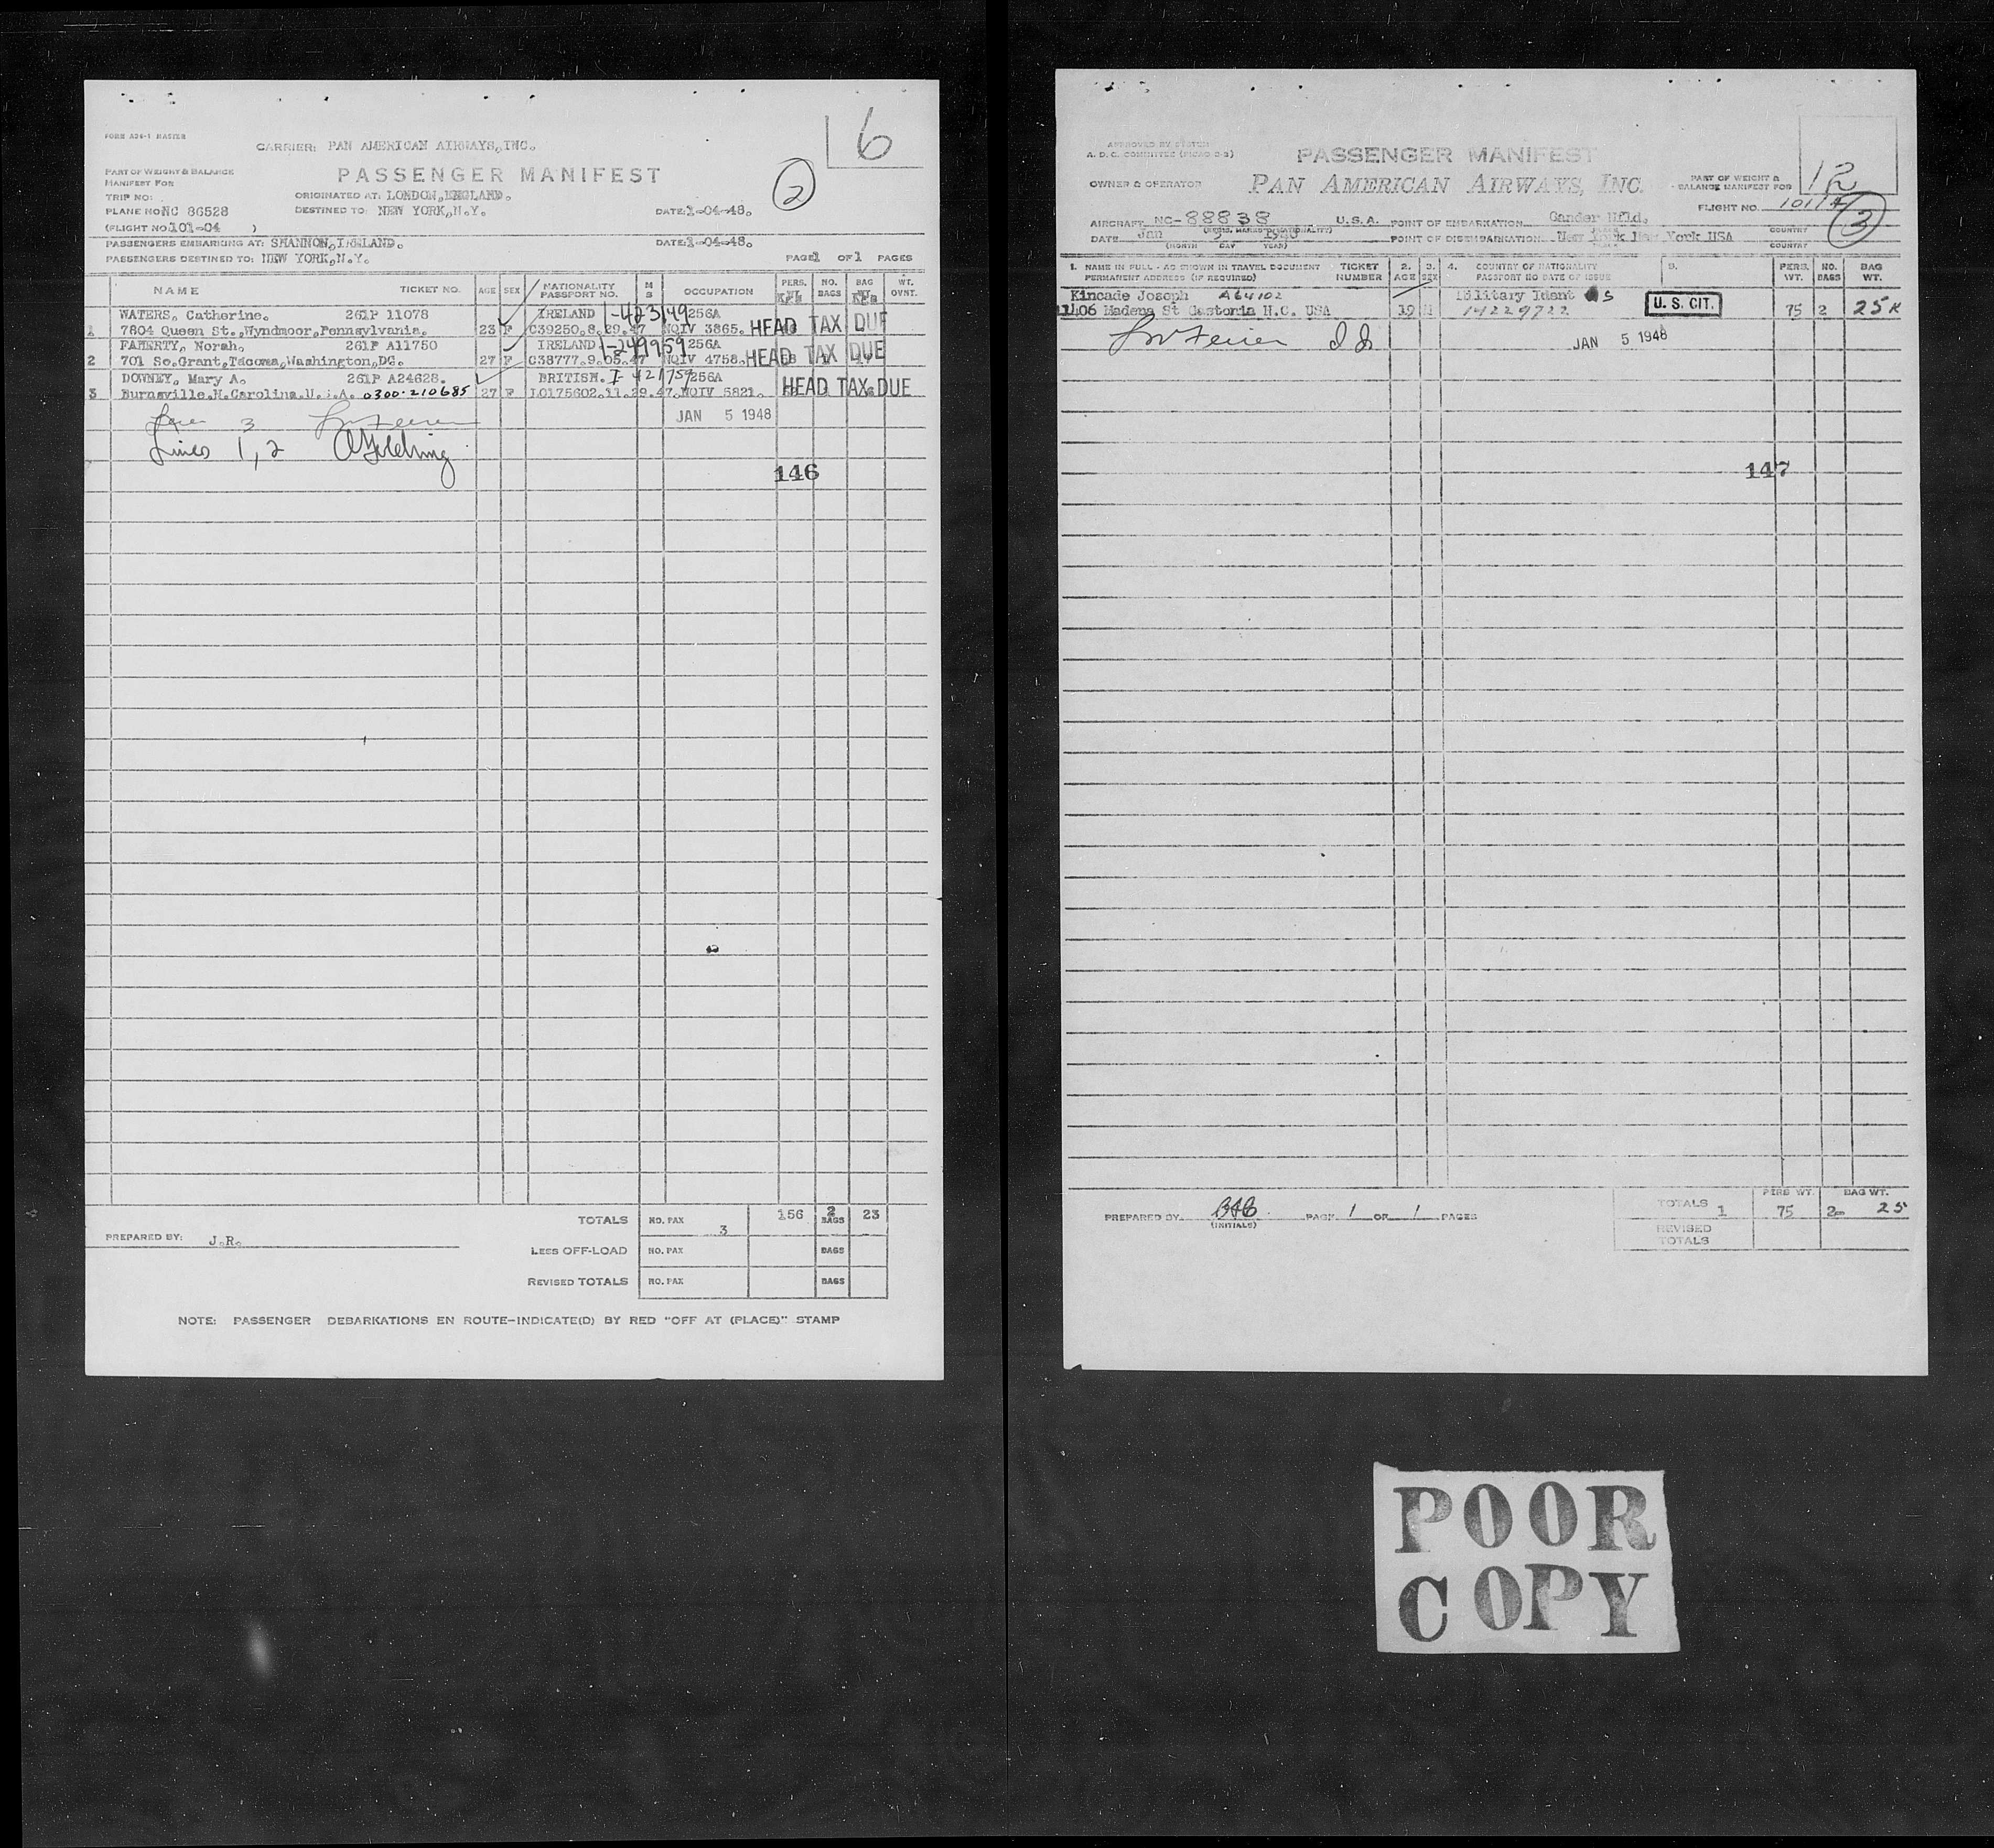 FORM A26-1 MASTER
6
CARRIER: PAN AMERICAN AIRWAYS, INC.
PART OF WEIGHT & BALANCE
MANIFEST FOR
PASSENGER MANIFEST
2
TRIP NO:
ORIGINATED AT: LONDON, ENGLAND.
PLANE NO NC 86528
DESTINED TO: NEW YORK, N.Y.
DATE: 1-04-48.
(FLIGHT NO. 101-04 )
PASSENGERS EMBARKING AT: SHANNON, IRELAND.
DATE: 1-04-48.
PASSENGERS DESTINED TO: NEW YORK, N.Y.
PAGE 1 OF 1 PAGES
NAME TICKET NO. AGE SEX NATIONALITY PASSPORT NO. M S OCCUPATION PERS. NO. BAGS BAG WT. OVNT.
WATERS, Catherine. 261P 11078 IRELAND I-423149 256A
1 7804 Queen St., Wyndmoor, Pennsylvania. 23 F C39250.8.29.47 NQIV 3865. HEAD TAX DUE
FAHERTY, Norah. 261P A11750 IRELAND I-249959 256A
2 701 So. Grant, Tacoma, Washington, DC. 27 F C38777.9.05.47 NQIV 4758. HEAD TAX DUE
DOWNEY, Mary A. 261P A24628. BRITISH. I-421759 256A
3 Burnsville. N. Carolina. U.S.A. 0300-210685 27 F L0175602.11.29.47. NQIV 5821. HEAD TAX DUE
3
JAN 5 1948
Lines 1, 2
146
TOTALS NO. PAX 3 156 2 BAGS 23
PREPARED BY: J.R.
LESS OFF-LOAD NO. PAX BAGS
REVISED TOTALS NO. PAX BAGS
NOTE: PASSENGER DEBARKATIONS EN ROUTE—INDICATE(D) BY RED "OFF AT (PLACE)" STAMP
APPROVED BY SYSTEM
A. D. C. COMMITTEE
PASSENGER MANIFEST
12
OWNER & OPERATOR PAN AMERICAN AIRWAYS, INC.
PART OF WEIGHT &
BALANCE MANIFEST FOR
FLIGHT NO. 101/4
3
AIRCRAFT NC-88838 U.S.A. POINT OF EMBARKATION Gander Nfld. COUNTRY
DATE Jan 5 1948 POINT OF DISEMBARKATION New York New York USA
(MONTH DAY YEAR) COUNTRY
1. NAME IN FULL - AS SHOWN IN TRAVEL DOCUMENT
PERMANENT ADDRESS (IF REQUIRED)
TICKET NUMBER 2. AGE 3. SEX 4. COUNTRY OF NATIONALITY
PASSPORT NO DATE OF ISSUE 5. PERS. WT. NO. BAGS BAG WT.
Kincade Joseph A64102 Military Ident
1406 Madena St Gastonia N.C. USA 19 M 14229722 U. S. CIT. 75 2 25 K
JAN 5 1948
147
PREPARED BY (INITIALS) PAGE 1 OF 1 PAGES
PERS WT. BAG WT.
TOTALS 1 75 2 25
REVISED
TOTALS
POOR
COPY